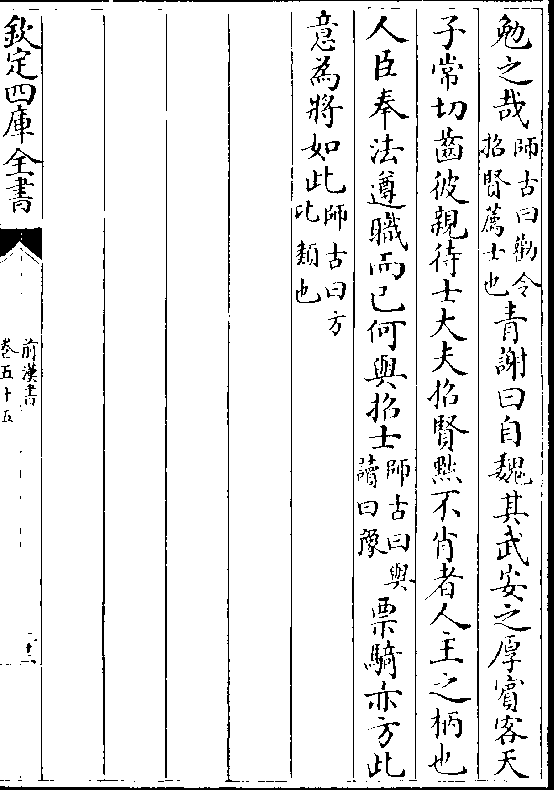 勉之哉師古曰勸令招賢薦士也青謝曰自魏其武安之厚賓客天
子常切齒彼親待士大夫招賢黜不肖者人主之柄也
人臣奉法遵職而已何與招士師古曰與讀曰豫票騎亦方此
意為將如此師古曰方比類也
欽定四庫全書
前漢書
卷五十五